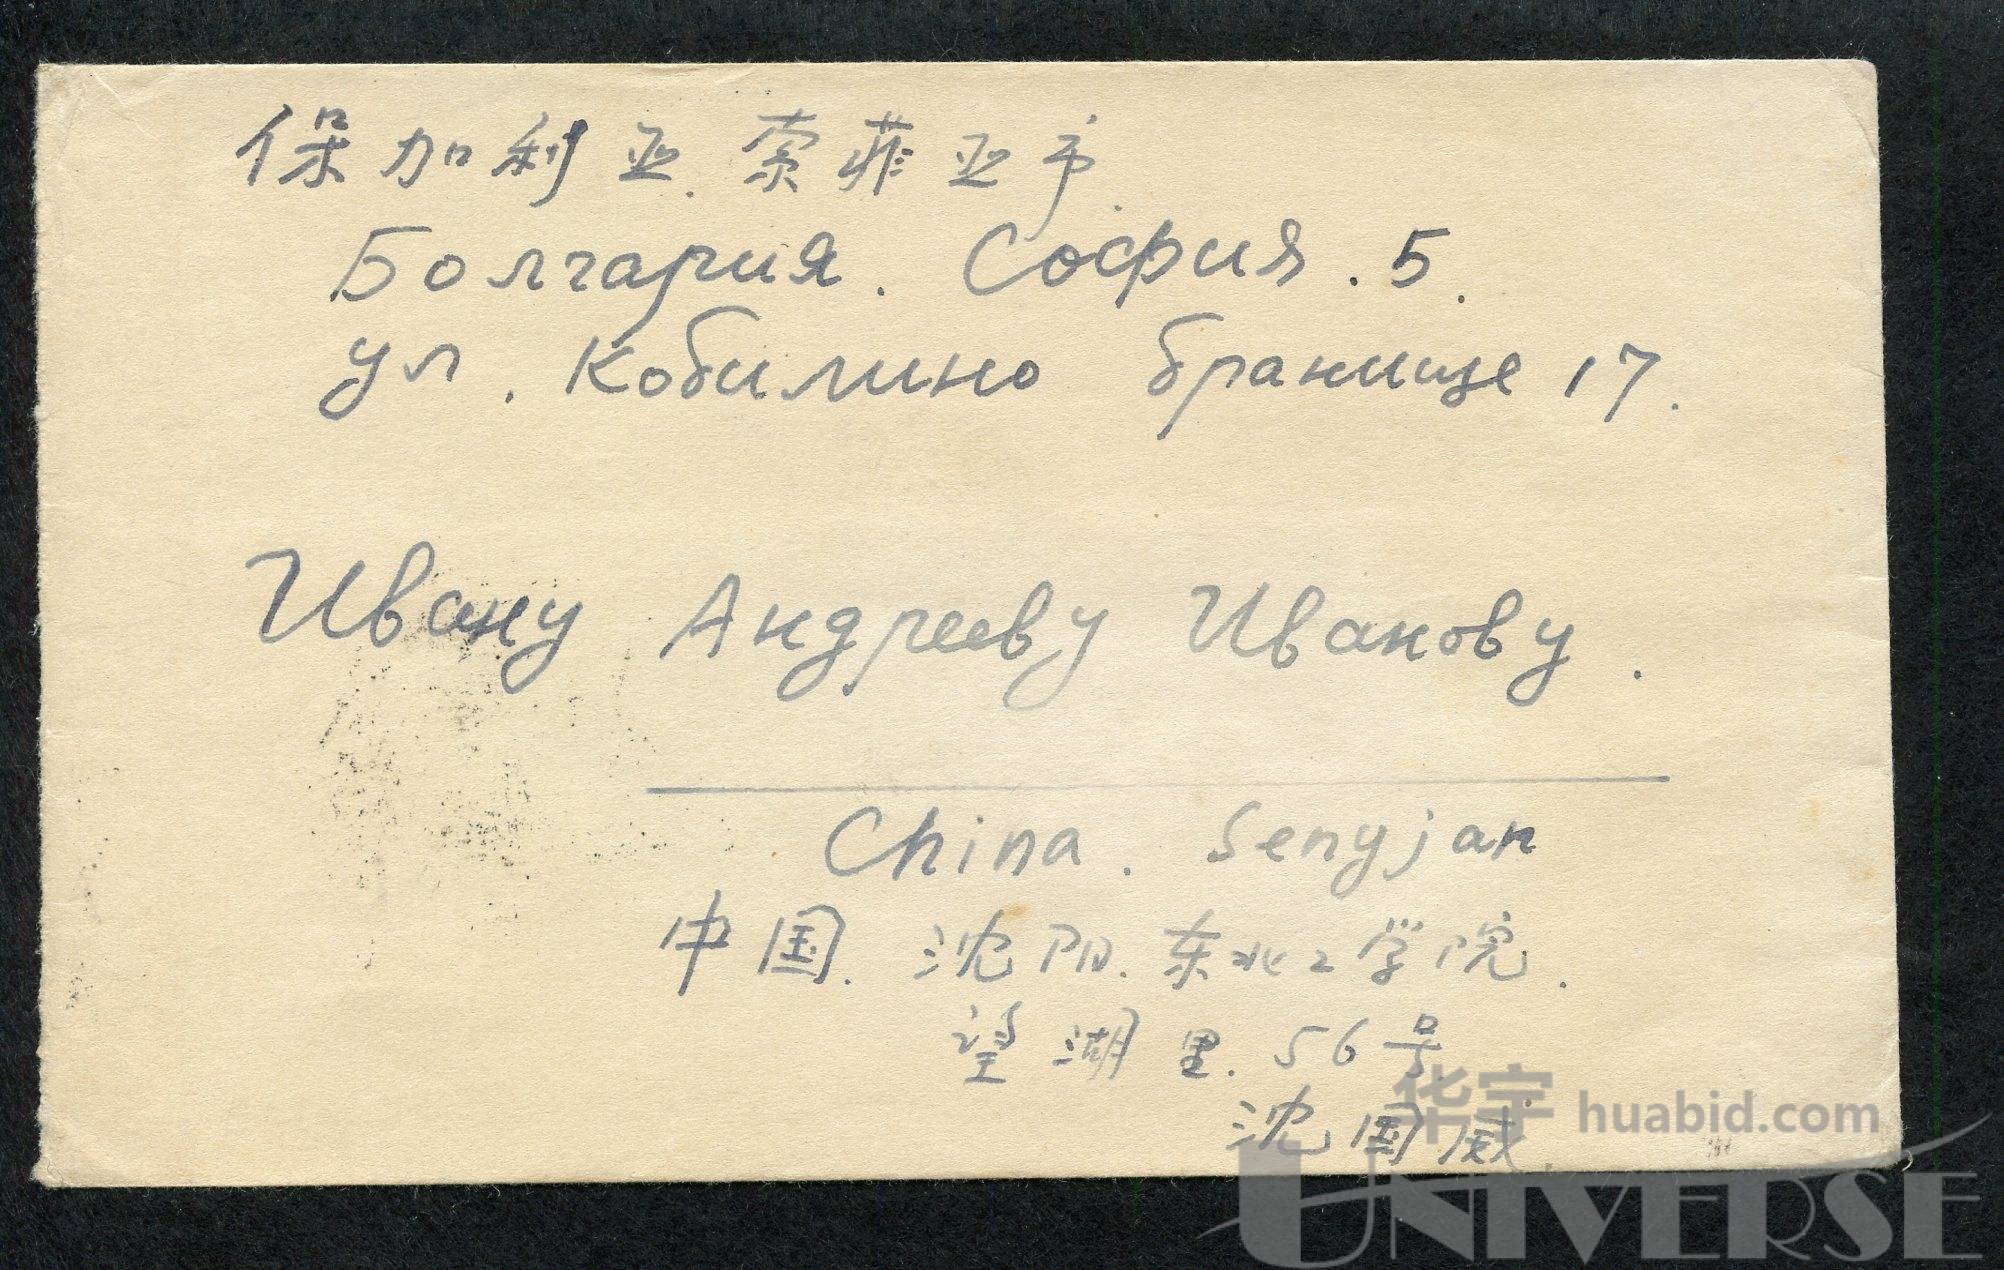 保加利亚.索菲亚市.
Болгария. София. 5.
ул. Кобилино бранище 17.
Ивану Андрееву Иванову.
China. Senyjan
中国.沈阳.东北工学院.
望湖里.56号.
沈国威.
华宇 huabid.com
UNIVERSE